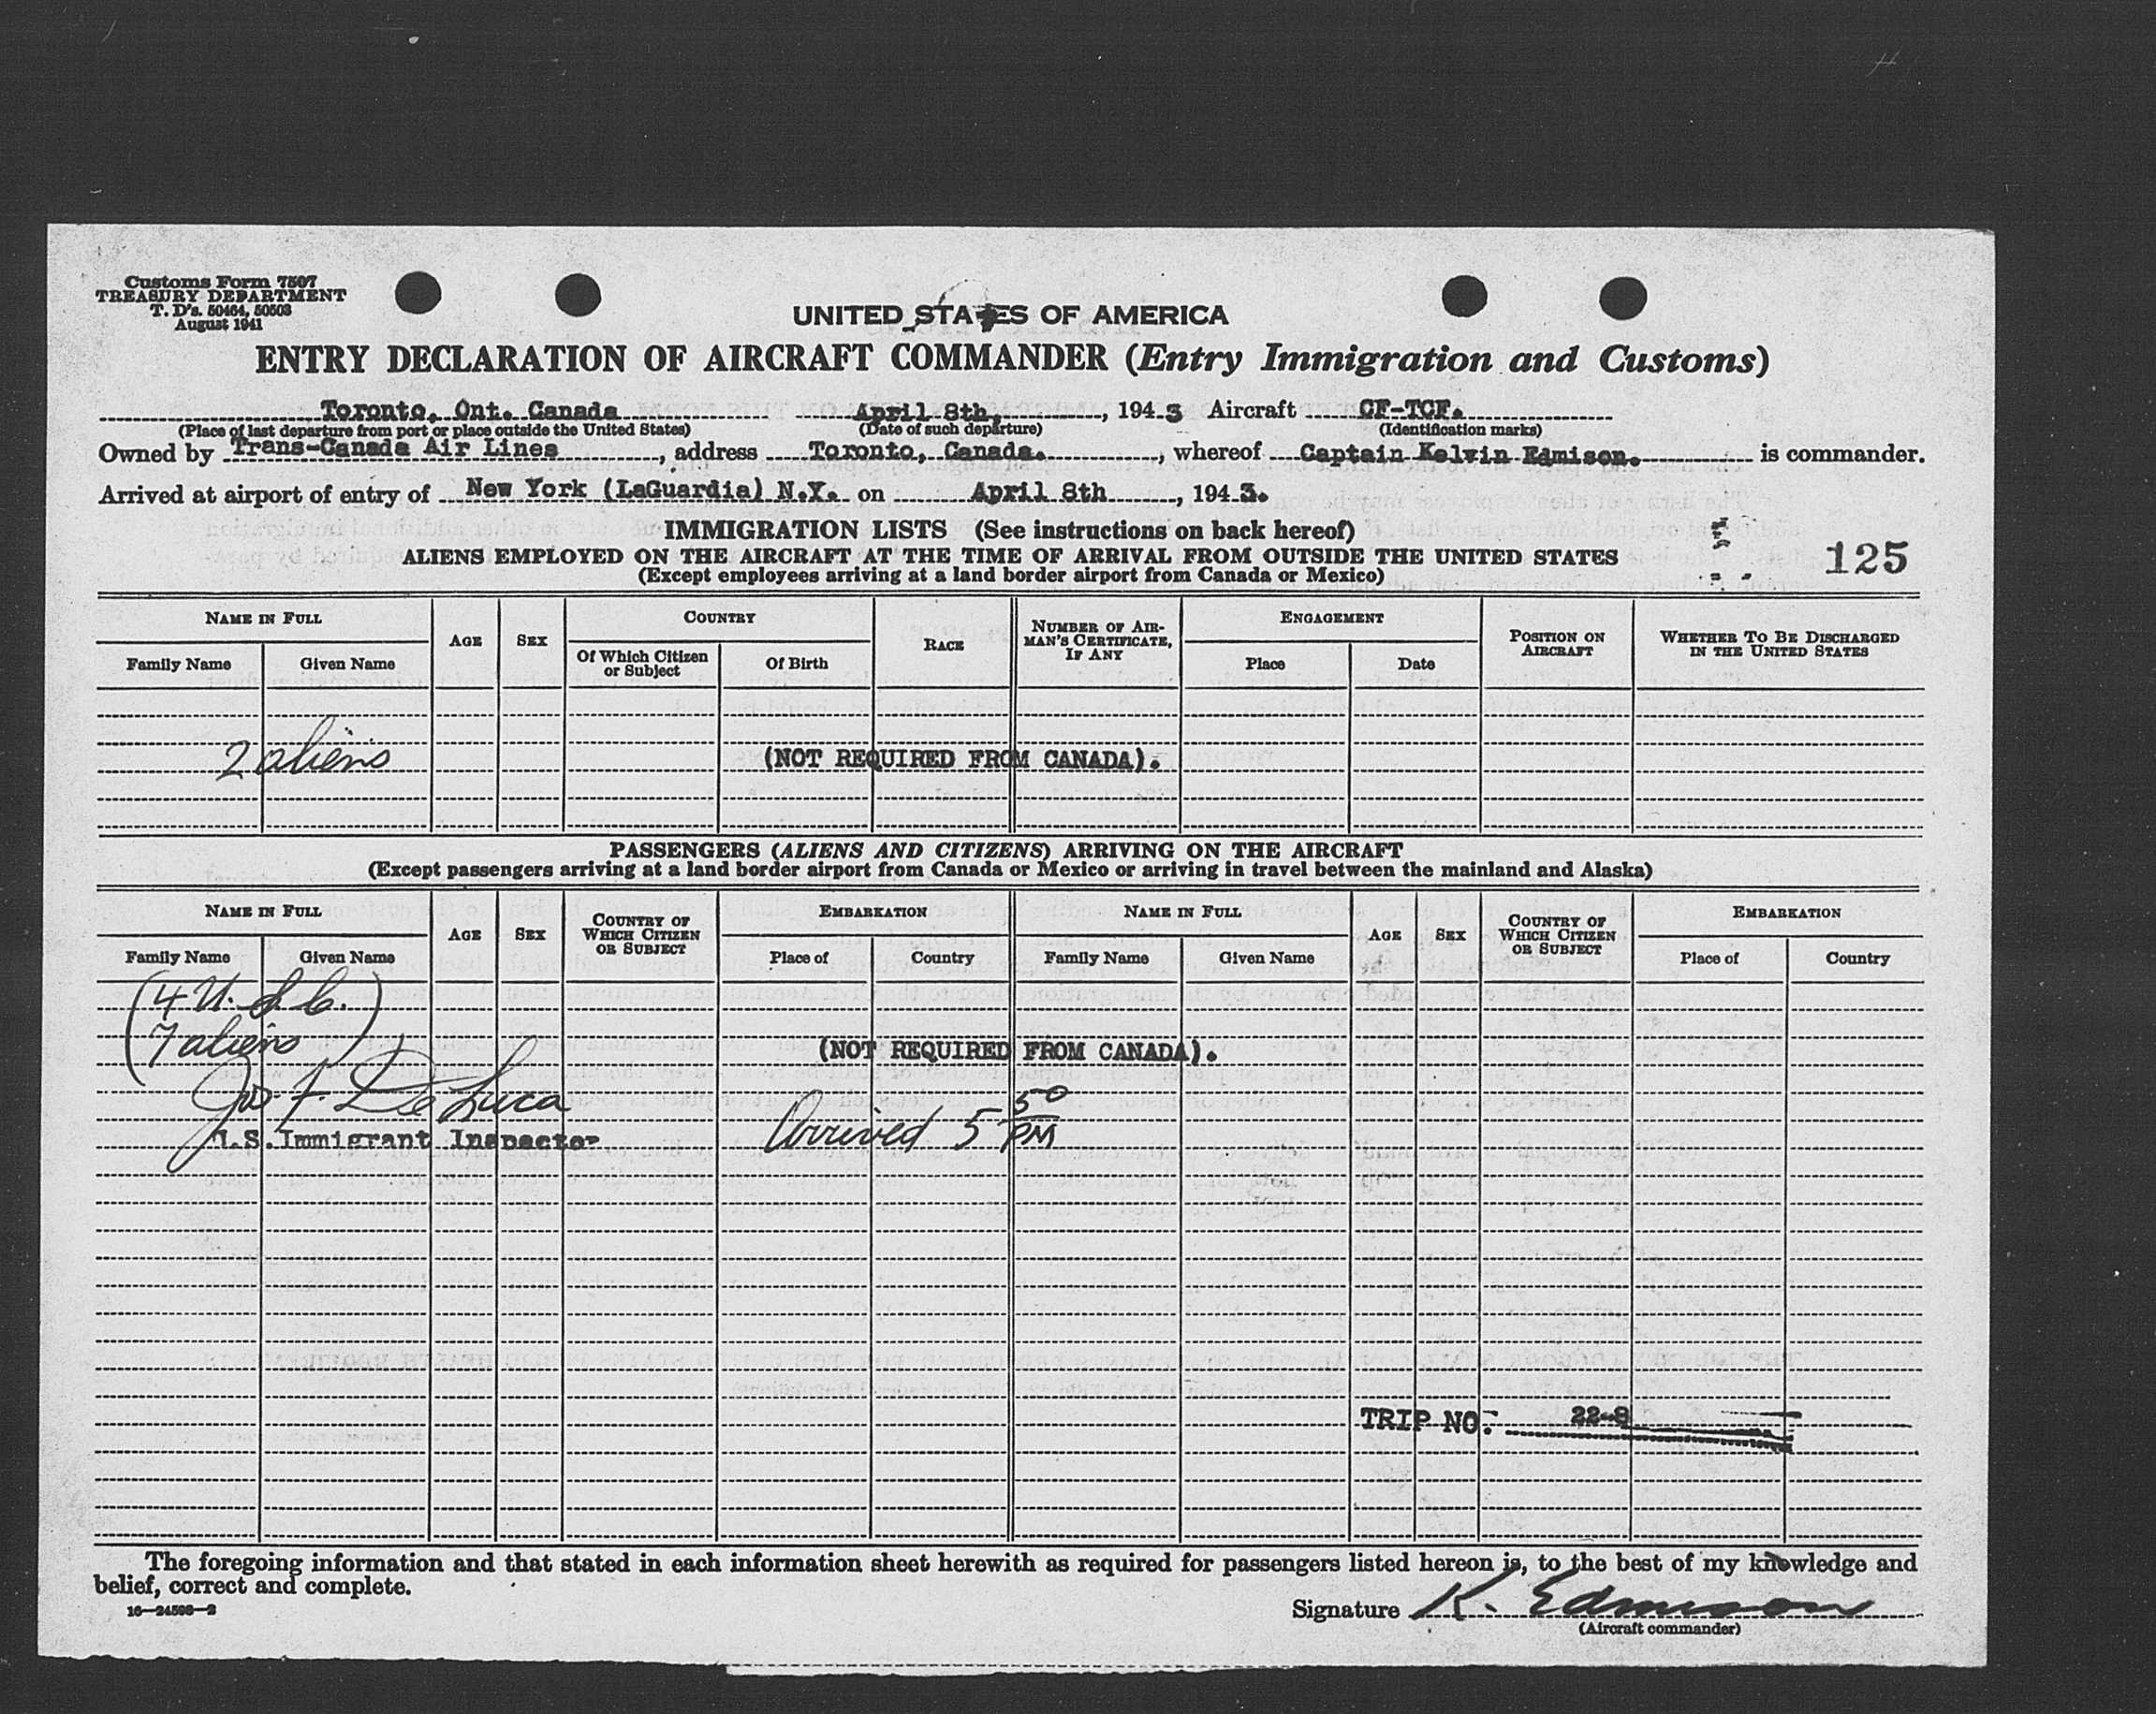 Customs Form 7507
TREASURY DEPARTMENT
T. D's. 50464, 50503
August 1941
UNITED STATES OF AMERICA
ENTRY DECLARATION OF AIRCRAFT COMMANDER (Entry Immigration and Customs)
Toronto, Ont. Canada April 8th, , 1943 Aircraft CF-TCF.
(Place of last departure from port or place outside the United States) (Date of such departure) (Identification marks)
Owned by Trans-Canada Air Lines , address Toronto, Canada. , whereof Captain Kelvin Edmison. is commander.
Arrived at airport of entry of New York (LaGuardia) N.Y. on April 8th , 1943.
IMMIGRATION LISTS (See instructions on back hereof)
ALIENS EMPLOYED ON THE AIRCRAFT AT THE TIME OF ARRIVAL FROM OUTSIDE THE UNITED STATES
(Except employees arriving at a land border airport from Canada or Mexico)
125
NAME IN FULL AGE SEX COUNTRY RACE NUMBER OF AIRMAN'S CERTIFICATE, IF ANY ENGAGEMENT POSITION ON AIRCRAFT WHETHER TO BE DISCHARGED IN THE UNITED STATES
Family Name Given Name Of Which Citizen or Subject Of Birth Place Date
2 aliens (NOT REQUIRED FROM CANADA).
PASSENGERS (ALIENS AND CITIZENS) ARRIVING ON THE AIRCRAFT
(Except passengers arriving at a land border airport from Canada or Mexico or arriving in travel between the mainland and Alaska)
NAME IN FULL AGE SEX COUNTRY OF WHICH CITIZEN OR SUBJECT EMBARKATION NAME IN FULL AGE SEX COUNTRY OF WHICH CITIZEN OR SUBJECT EMBARKATION
Family Name Given Name Place of Country Family Name Given Name Place of Country
(4 U.S.C.)
(7 aliens) (NOT REQUIRED FROM CANADA).
Jos. F. De Luca
U.S. Immigrant Inspector Arrived 5 50 PM
TRIP NO. 22-8
The foregoing information and that stated in each information sheet herewith as required for passengers listed hereon is, to the best of my knowledge and
belief, correct and complete.
16—24598—2
Signature K. Edmison
(Aircraft commander)